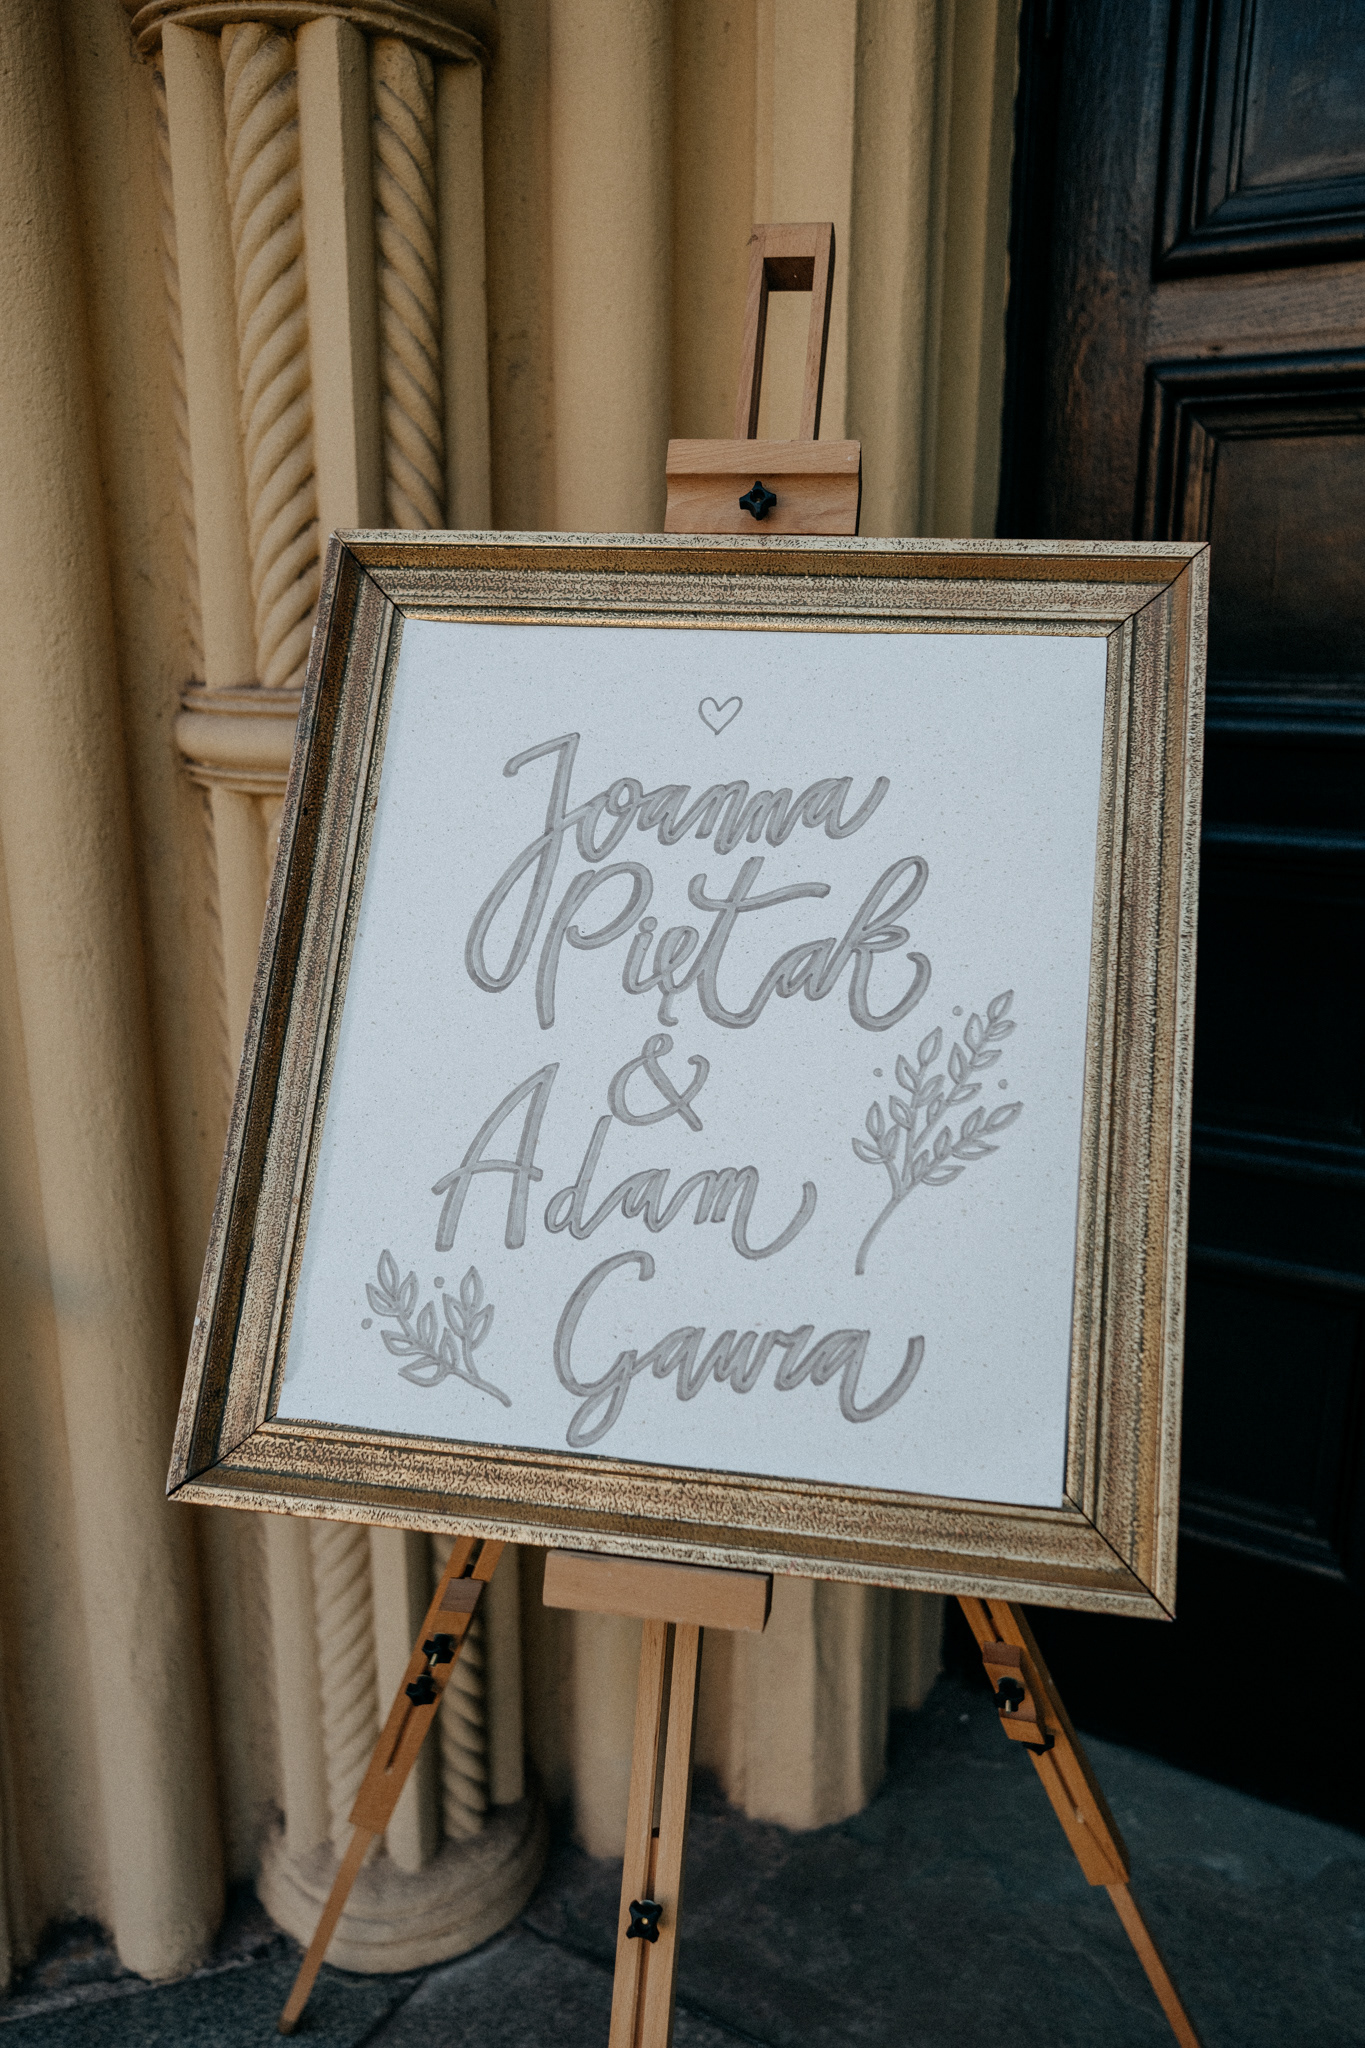 Joanna
Piętak
&
Adam
Gawra